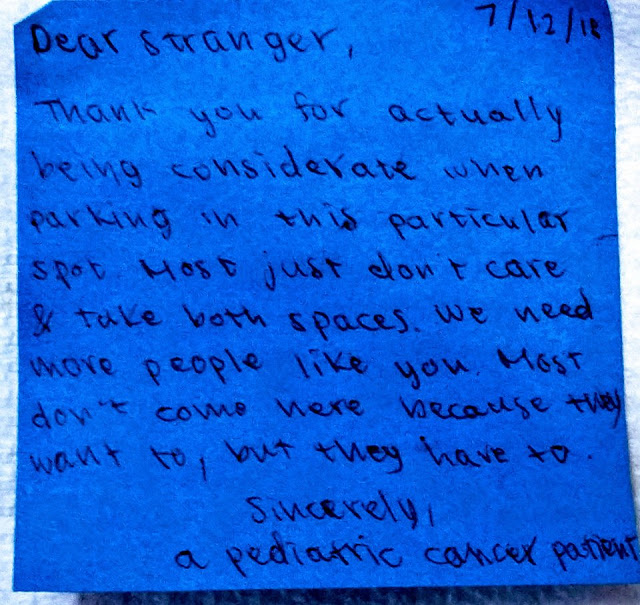 7/12/18
Dear stranger,
Thank you for actually
being considerate when
parking in this particular
spot. Most just don't care
& take both spaces. We need
more people like you. Most
don't come here because they
want to, but they have to.
Sincerely,
a pediatric cancer patient